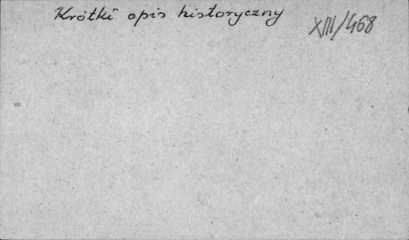 Krótki opis historyczny
XIII/468